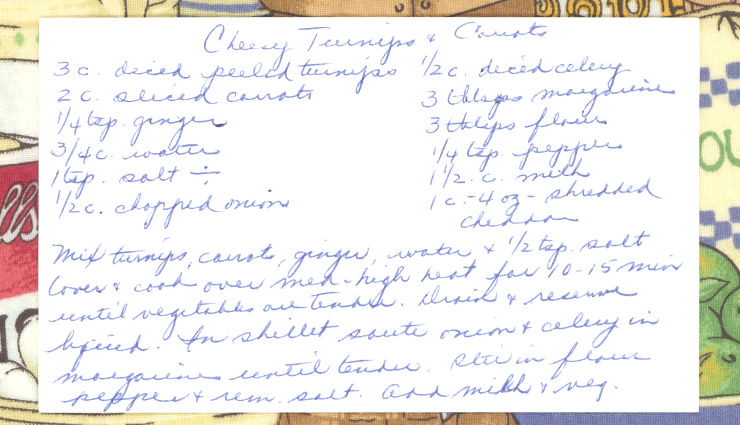 Cheesy Turnips & Carrots
3 c. diced peeled turnips
2 c. sliced carrots
1/4 tsp. ginger
3/4 c. water
1 tsp. salt ÷
1/2 c. chopped onion
1/2 c. diced celery
3 tblsps margarine
3 tblsps flour
1/4 tsp. pepper
1 1/2 c. milk
1 c. - 4 oz - shredded
cheddar
Mix turnips, carrots, ginger, water & 1/2 tsp. salt
Cover & cook over med-high heat for 10-15 min
until vegetables are tender. Drain & reserve
liquid. In skillet saute onion & celery in
margarine until tender. Stir in flour
pepper & rem. salt. Add milk & veg.
lls